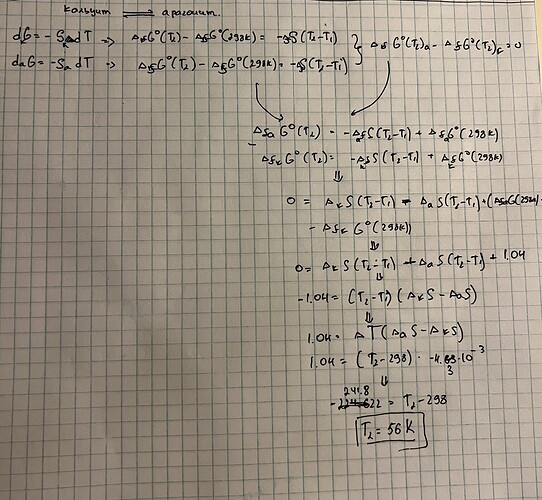 кальцит ⇌ арагонит.
dкG = - Sк dT => ΔfG°(T₂) - ΔfG°(298K) = -ΔfS(T₂-T₁) } ΔfG°(T₂)a - ΔfG°(T₂)c = 0
daG = -Sa dT => ΔfG°(T₂) - ΔfG°(298K) = -ΔfS(T₂-T₁)
ΔfaG°(T₂) = -ΔafS(T₂-T₁) + ΔfaG°(298K)
-
ΔfкG°(T₂) = -ΔкfS(T₂-T₁) + ΔкfG°(298K)
⇓
0 = ΔкS(T₂-T₁) - ΔaS(T₂-T₁) + (ΔfaG(298K) -
- ΔfкG°(298K))
⇓
0 = ΔкS(T₂-T₁) + ΔaS(T₂-T₁) + 1.04
⇓
-1.04 = (T₂-T₁)(ΔкS - ΔaS)
⇓
1.04 = ΔT(ΔaS - ΔкS)
1.04 = (T₂-298) · -4.3·10⁻³
⇓
-241.8 = T₂-298
T₂ = 56 K